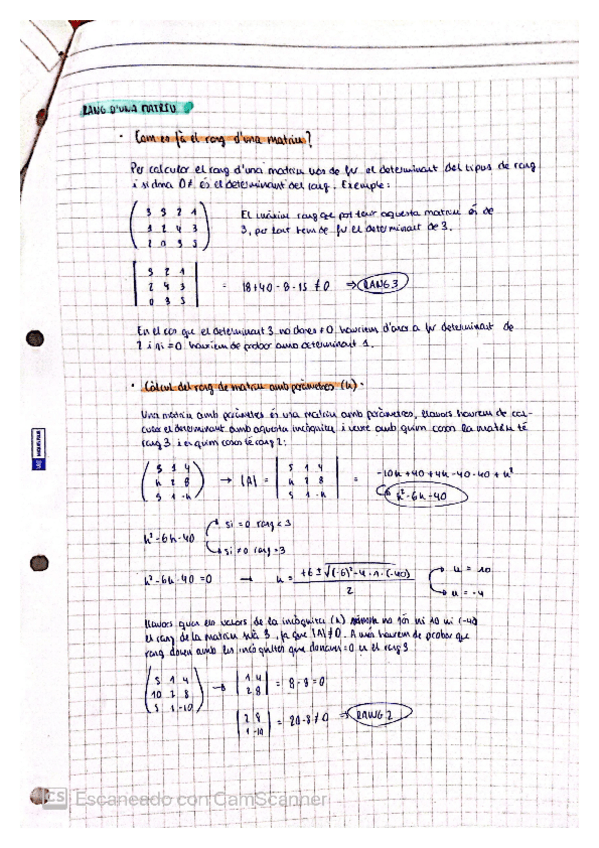 RANG D'UNA MATRIU
· Com es fà el rang d'una matriu?
Per calcular el rang d'una matriu hem de fer el determinant del tipus de rang
i si dona 0≠ és el determinant del rang. Exemple:
3 3 2 1
1 2 4 3
2 0 3 3
El màxim rang que pot tenir aquesta matriu és de
3, per tant hem de fer el determinant de 3.
3 2 1
2 4 3
0 3 5
= 18+40-8-15 ≠ 0 ⇒ RANG 3
En el cas que el determinant 3 no dones ≠0, hauriem d'anar a fer determinant de
2 i si =0 hauriem de probar amb determinant 1.
· Càlcul del rang de matriu amb paràmetres (k).
Una matriu amb paràmetres és una matriu amb paràmetres, llavors haurem de cal-
cular el determinant amb aquesta incògnita i veure amb quim casos la matriu té
rang 3, i en quim casos té rang 2:
5 1 4
k 2 8
5 1 -k
→ |A| =
5 1 4
k 2 8
5 1 -k
= -10k+40+4k-40-40+k²
k²-6k-40
k²-6k-40
si = 0 rang < 3
si ≠ 0 rang = 3
k²-6k-40 = 0 → k = +6 ± √(-6)²-4·1·(-40) / 2
k = 10
k = -4
Llavors quan els valors de la incògnita (k) no són ni 10 ni (-4)
el rang de la matriu serà 3, ja que |A|≠0. A més haurem de probar que
rang donen amb les incògnites que donaven =0 en el rang 3
5 1 4
10 2 8
5 1 -10
→
1 4
2 8
= 8-8=0
2 8
1 -10
= -20-8≠0 ⇒ RANG 2
CS Escaneado con CamScanner